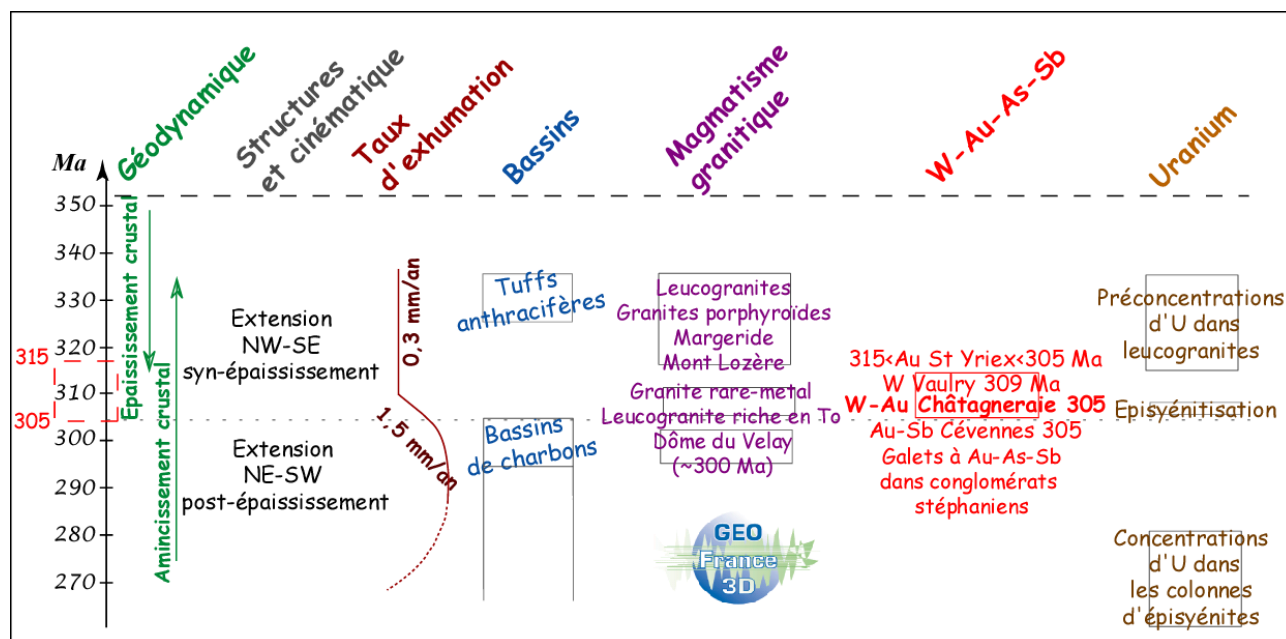 Géodynamique
Structures
et cinématique
Taux
d'exhumation
Bassins
Magmatisme
granitique
W-Au-As-Sb
Uranium
Ma
350
340
330
320
310
300
290
280
270
315
305
Epaississement crustal
Amincissement crustal
Extension
NW-SE
syn-épaississement
Extension
NE-SW
post-épaississement
0,3 mm/an
1,5 mm/an
Tuffs
anthracifères
Bassins
de charbons
Leucogranites
Granites porphyroïdes
Margeride
Mont Lozère
Granite rare-metal
Leucogranite riche en To
Dôme du Velay
(~300 Ma)
GEO
France
3D
315<Au St Yriex<305 Ma
W Vaulry 309 Ma
W-Au Châtagneraie 305
Au-Sb Cévennes 305
Galets à Au-As-Sb
dans conglomérats
stéphaniens
Préconcentrations
d'U dans
leucogranites
Episyénitisation
Concentrations
d'U dans
les colonnes
d'épisyénites